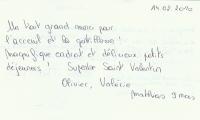 14.02.2010
Un tout grand merci pour
l'accueil et la gentillesse !
Magnifique endroit et délicieux petits
déjeuners ! Superbe Saint Valentin
Olivier, Valérie
Matthéo 9 mois